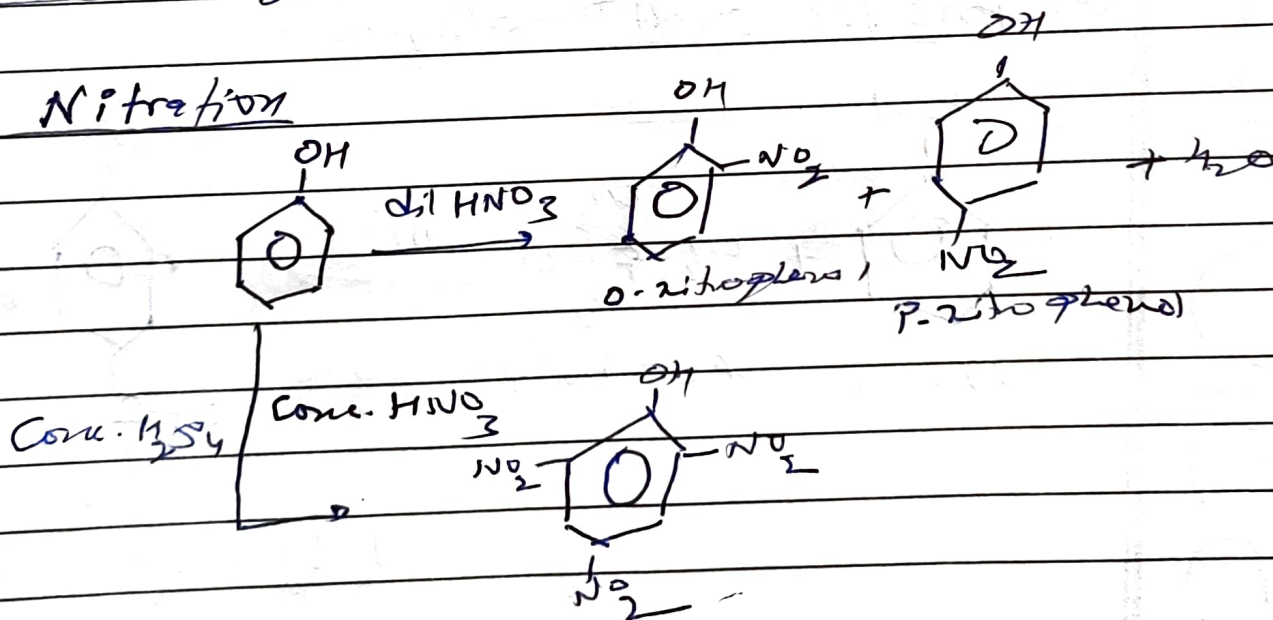 Nitration
OH
dil HNO3
OH
NO2
+
OH
NO2
+ H2O
o-nitrophenol
p-nitrophenol
Conc. H2SO4
Conc. HNO3
OH
NO2
NO2
NO2